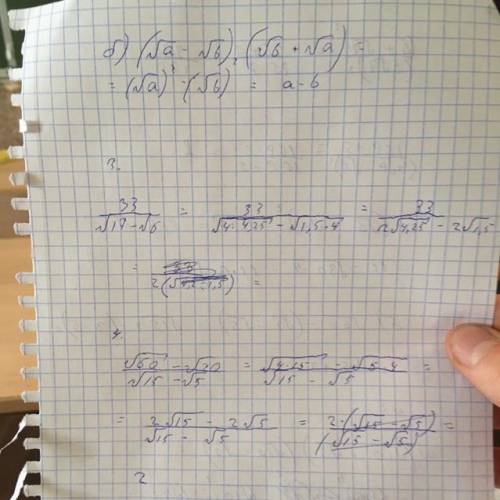 б) (√a - √b) (√b + √a) =
= (√a)² - (√b)² = a - b
3.
33/(√17 - √6) = 33/(√4·4,25 - √1,5·4) = 33/(2√4,25 - 2√1,5)
=
4.
(√60 - √20)/(√15 - √5) = (√4·15 - √5·4)/(√15 - √5) =
= (2√15 - 2√5)/(√15 - √5) = 2·(√15 - √5)/(√15 - √5) =
2